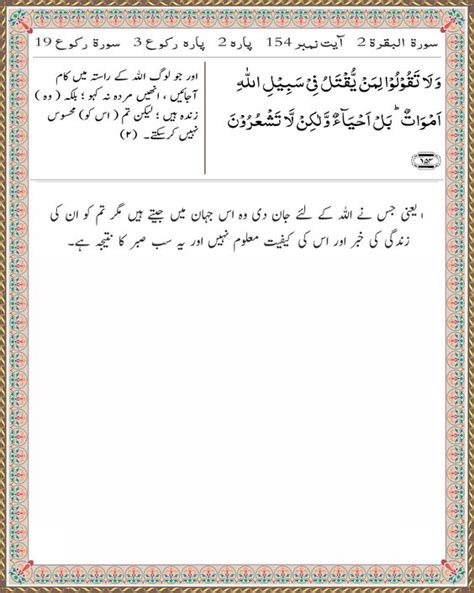 سورۃ البقرۃ 2 آیت نمبر 154 پارہ 2 پارہ رکوع 3 سورۃ رکوع 19
وَلَا تَقُوْلُوْا لِمَنْ يُّقْتَلُ فِيْ سَبِيْلِ اللّٰهِ
اَمْوَاتٌ ؕ بَلْ اَحْيَآءٌ وَّلٰكِنْ لَّا تَشْعُرُوْنَ
۱۵۴
اور جو لوگ اللہ کے راستہ میں کام
آجائیں ، انھیں مردہ نہ کہو ؛ بلکہ ( وہ )
زندہ ہیں ؛ لیکن تم ( اس کو ) محسوس
نہیں کرسکتے۔ (۲)
۱ یعنی جس نے اللہ کے لئے جان دی وہ اس جہان میں جیتے ہیں مگر تم کو ان کی
زندگی کی خبر اور اس کی کیفیت معلوم نہیں اور یہ سب صبر کا نتیجہ ہے۔